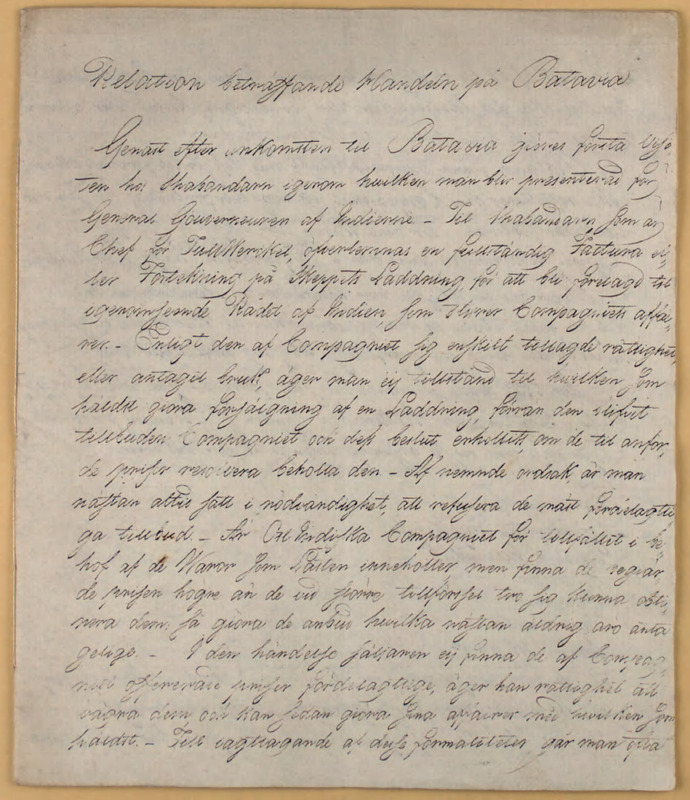 Relation beträffande Handeln på Batavia
Genast efter ankomsten til Batavia giöres första visi-
ten hos Shabandarn igenom hwilken man blir presenterad för
General Gouverneuren af Indierne. - Til Shabandarn som är
Chef för TullWercket, öfverlemnas en fullständig Factura el-
ler Förtekning på Skeppets Laddning, för att bli föredragd till
igenomseende Rådet af Indien som styrer Compagniets affai-
rer. - Enligt den af Compagniet sig enskilt tillagde rättighet,
eller antagit bruk, äger man ej tillstånd til hwilken som
haldst giöra försäligning af en Laddning, förran den blifvit
tillbuden Compagniet och dess beslut erhollits, om de til anför-
de priser resolvera beholla den - Af nemnde ordsak, är man
nästan altid satt i nödvändighet, att refusera de mäst fördelagti-
ga tillbud. - Är Ost Indiska Compagniet för tillfället i be-
hof af de Waror som Lasten inneholler men finna de begiär-
de prisen högre än de vid större tillförsel tro sig kunna obti-
nera dem, så giöra de anbud hwilka nästan aldrig äro anta
gelige. - I den händelse säljaren ej finna de af Compag-
niet offererade priser fördelagtige, äger han rättighet att
vägra dem, och kan sedan giöra sina affairer med hwilken som
häldst. - Till iagttagande af desse formaliteter går man ofta